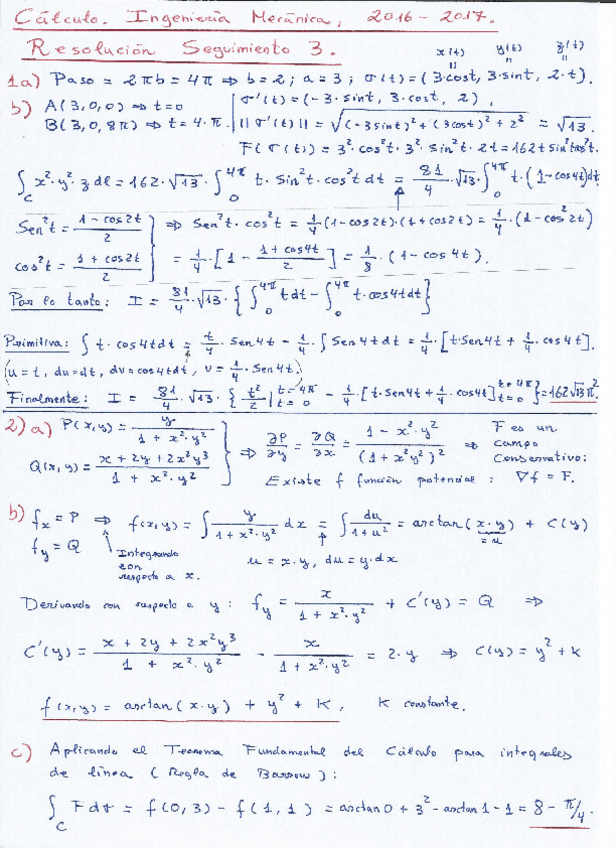 Cálculo. Ingeniería Mecánica, 2016-2017.
Resolución Seguimiento 3.
x(t) y(t) z(t)
1a) Paso = 2πb = 4π ⇒ b = 2; a = 3; σ(t) = (3·cost, 3·sint, 2·t).
b) A(3,0,0) ⇒ t=0 | σ'(t) = (-3·sint, 3·cost, 2),
B(3,0,8π) ⇒ t=4·π. | ||σ'(t)|| = √((-3sint)²+(3cost)²+2²) = √13.
F(σ(t)) = 3²·cos²t·3²·sin²t·2t = 162t sin²t cos²t.
∫_C x²·y²·z dl = 162·√13·∫_0^{4π} t·sin²t·cos²t dt = 81/4·√13·∫_0^{4π} t·(1-cos4t)dt
Sen²t = (1-cos2t)/2 ⇒ Sen²t·cos²t = 1/4(1-cos2t)·(1+cos2t) = 1/4·(1-cos²2t)
cos²t = (1+cos2t)/2 = 1/4·[1 - (1+cos4t)/2] = 1/8·(1-cos4t).
Por lo tanto: I = 81/4·√13·{∫_0^{4π} t dt - ∫_0^{4π} t·cos4t dt}
Primitiva: ∫ t·cos4t dt = t/4·Sen4t - 1/4·∫ Sen4t dt = 1/4·[t·Sen4t + 1/4·cos4t].
(u=t, du=dt, dv=cos4t dt, v=1/4·Sen4t.)
Finalmente: I = 81/4·√13·{t²/2 |_{t=0}^{t=4π} - 1/4·[t·Sen4t + 1/4·cos4t]_{t=0}^{t=4π}} = 162√13π².
2) a) P(x,y) = y/(1+x²·y²)
Q(x,y) = (x+2y+2x²y³)/(1+x²·y²)
⇒ ∂P/∂y = ∂Q/∂x = (1-x²·y²)/(1+x²y²)² ⇒ F es un
campo
Conservativo:
Existe f función potencial: ∇f = F.
b) f_x = P ⇒ f(x,y) = ∫ y/(1+x²·y²) dx = ∫ du/(1+u²) = arctan(x·y) + C(y)
=u
f_y = Q
Integrando
con
respecto a x.
u = x·y, du = y·dx
Derivando con respecto a y: f_y = x/(1+x²·y²) + C'(y) = Q ⇒
C'(y) = (x+2y+2x²y³)/(1+x²·y²) - x/(1+x²y²) = 2·y ⇒ C(y) = y²+k
f(x,y) = arctan(x·y) + y² + K, K constante.
c) Aplicando el Teorema Fundamental del Cálculo para integrales
de línea (Regla de Barrow):
∫_C F dσ = f(0,3) - f(1,1) = arctan0 + 3² - arctan1 - 1 = 8 - π/4.